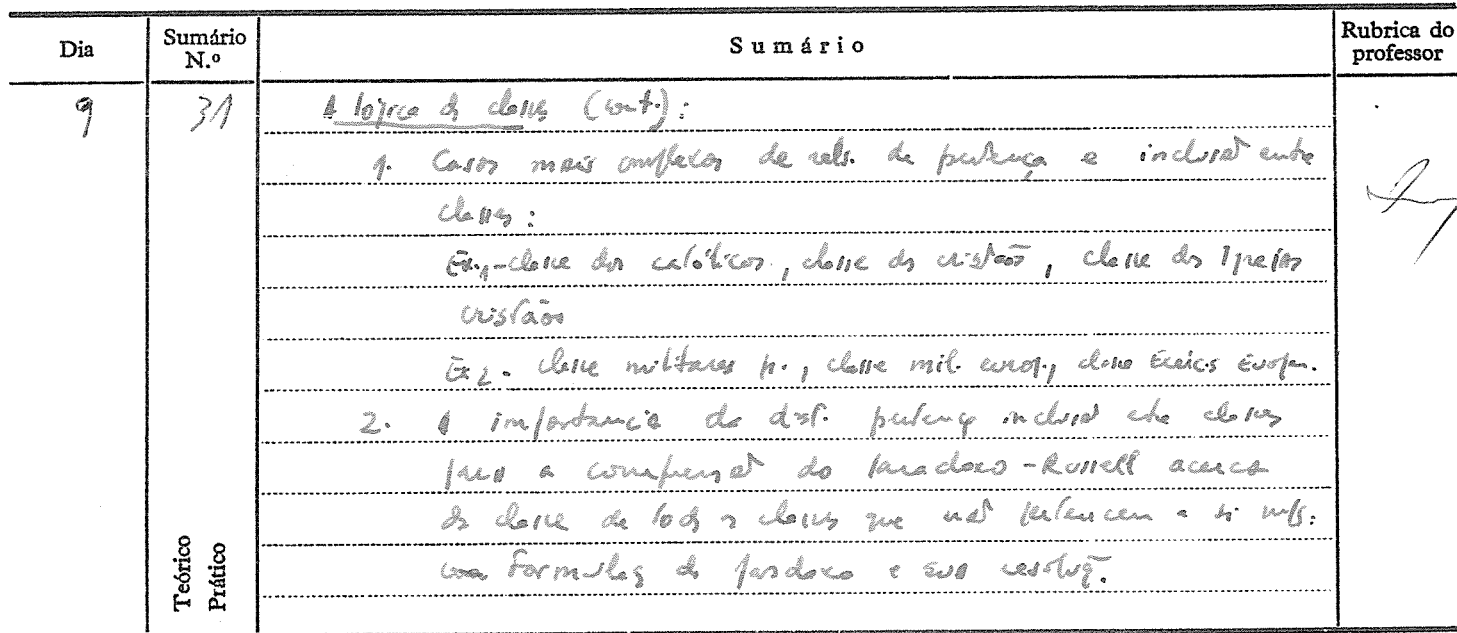 Dia
Sumário N.º
Sumário
Rubrica do professor
9
31
A lógica de classes (cont.):
1. Casos mais complexos de rels. de pertença e inclusão entre
classes:
Ex.1 - classe dos católicos, classe dos cristãos, classe das Igrejas
cristãos
Ex.2 - classe militares p., classe mil. europ., classe Exércs Europ.
2. A importância da dist. pertenç inclusão entre classes
para a compreensão do paradoxo - Russell acerca
da classe de todas as classes que não pertencem a si mps:
uma formulaç do paradoxo e sua resoluç.
Teórico
Prático